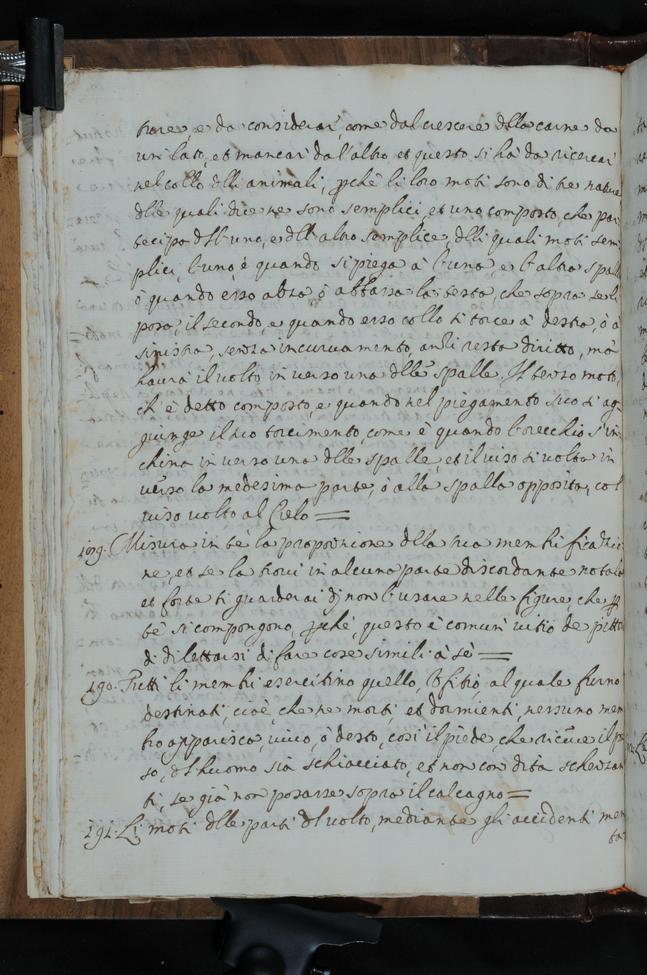 trare, e da considerar, come dal crescere della carne da
un lato, et mancar dal'altro, et questo si ha da ricercar
nel collo dlli animali, pche li loro moti sono di tre nature
dlle quali dicene sono semplici, et uno composto, che par
tecipa dll'uno, e dll'altro semplice, dlli quali moti sem
plici, l'uno, è quando si piega à l'una, e l'altra spall
ò quando esso alza, ò abbassa la testa, che sopra se li
posa, il secondo, e quando esso collo si torce à destra, ò à
sinistra, senza incurvamento, anzi resta diritto, mà
havrà il volto in verso una dlle spalle, Il terzo moto,
ch'è detto composto, e quando nel piegamento suo si ag
giunge il suo torcimento, come è quando l'orecchio s'in
china in verso una dlle spalle, et il viso si volta in
verso la medesima parte, ò alla spalla opposita, col
viso volto al Cielo =
189. Misura in te la proportione della tua membrificatio
ne, et se la trovi in alcuna parte discordante notala
et forte ti guarderai dj non l'usare nelle figure, che p
te si compongono, pche, questo è comun' vitio de pittor
di dilettarsi di fare cose simili à sè =
190. Tutti li membri esercitino quello, Ofitio, al quale furno
destinati, cioè, che ne morti et dormienti, nessuno mem
bro apparisca, vivo, ò desto, così il piede, che riceve il pe
so, dl'huomo sia schiacciato, et non con dita scherzan
ti, se già non posasse sopra il calcagno =
191. Li moti dlle parti dl volto, mediante gli accidenti men
ta